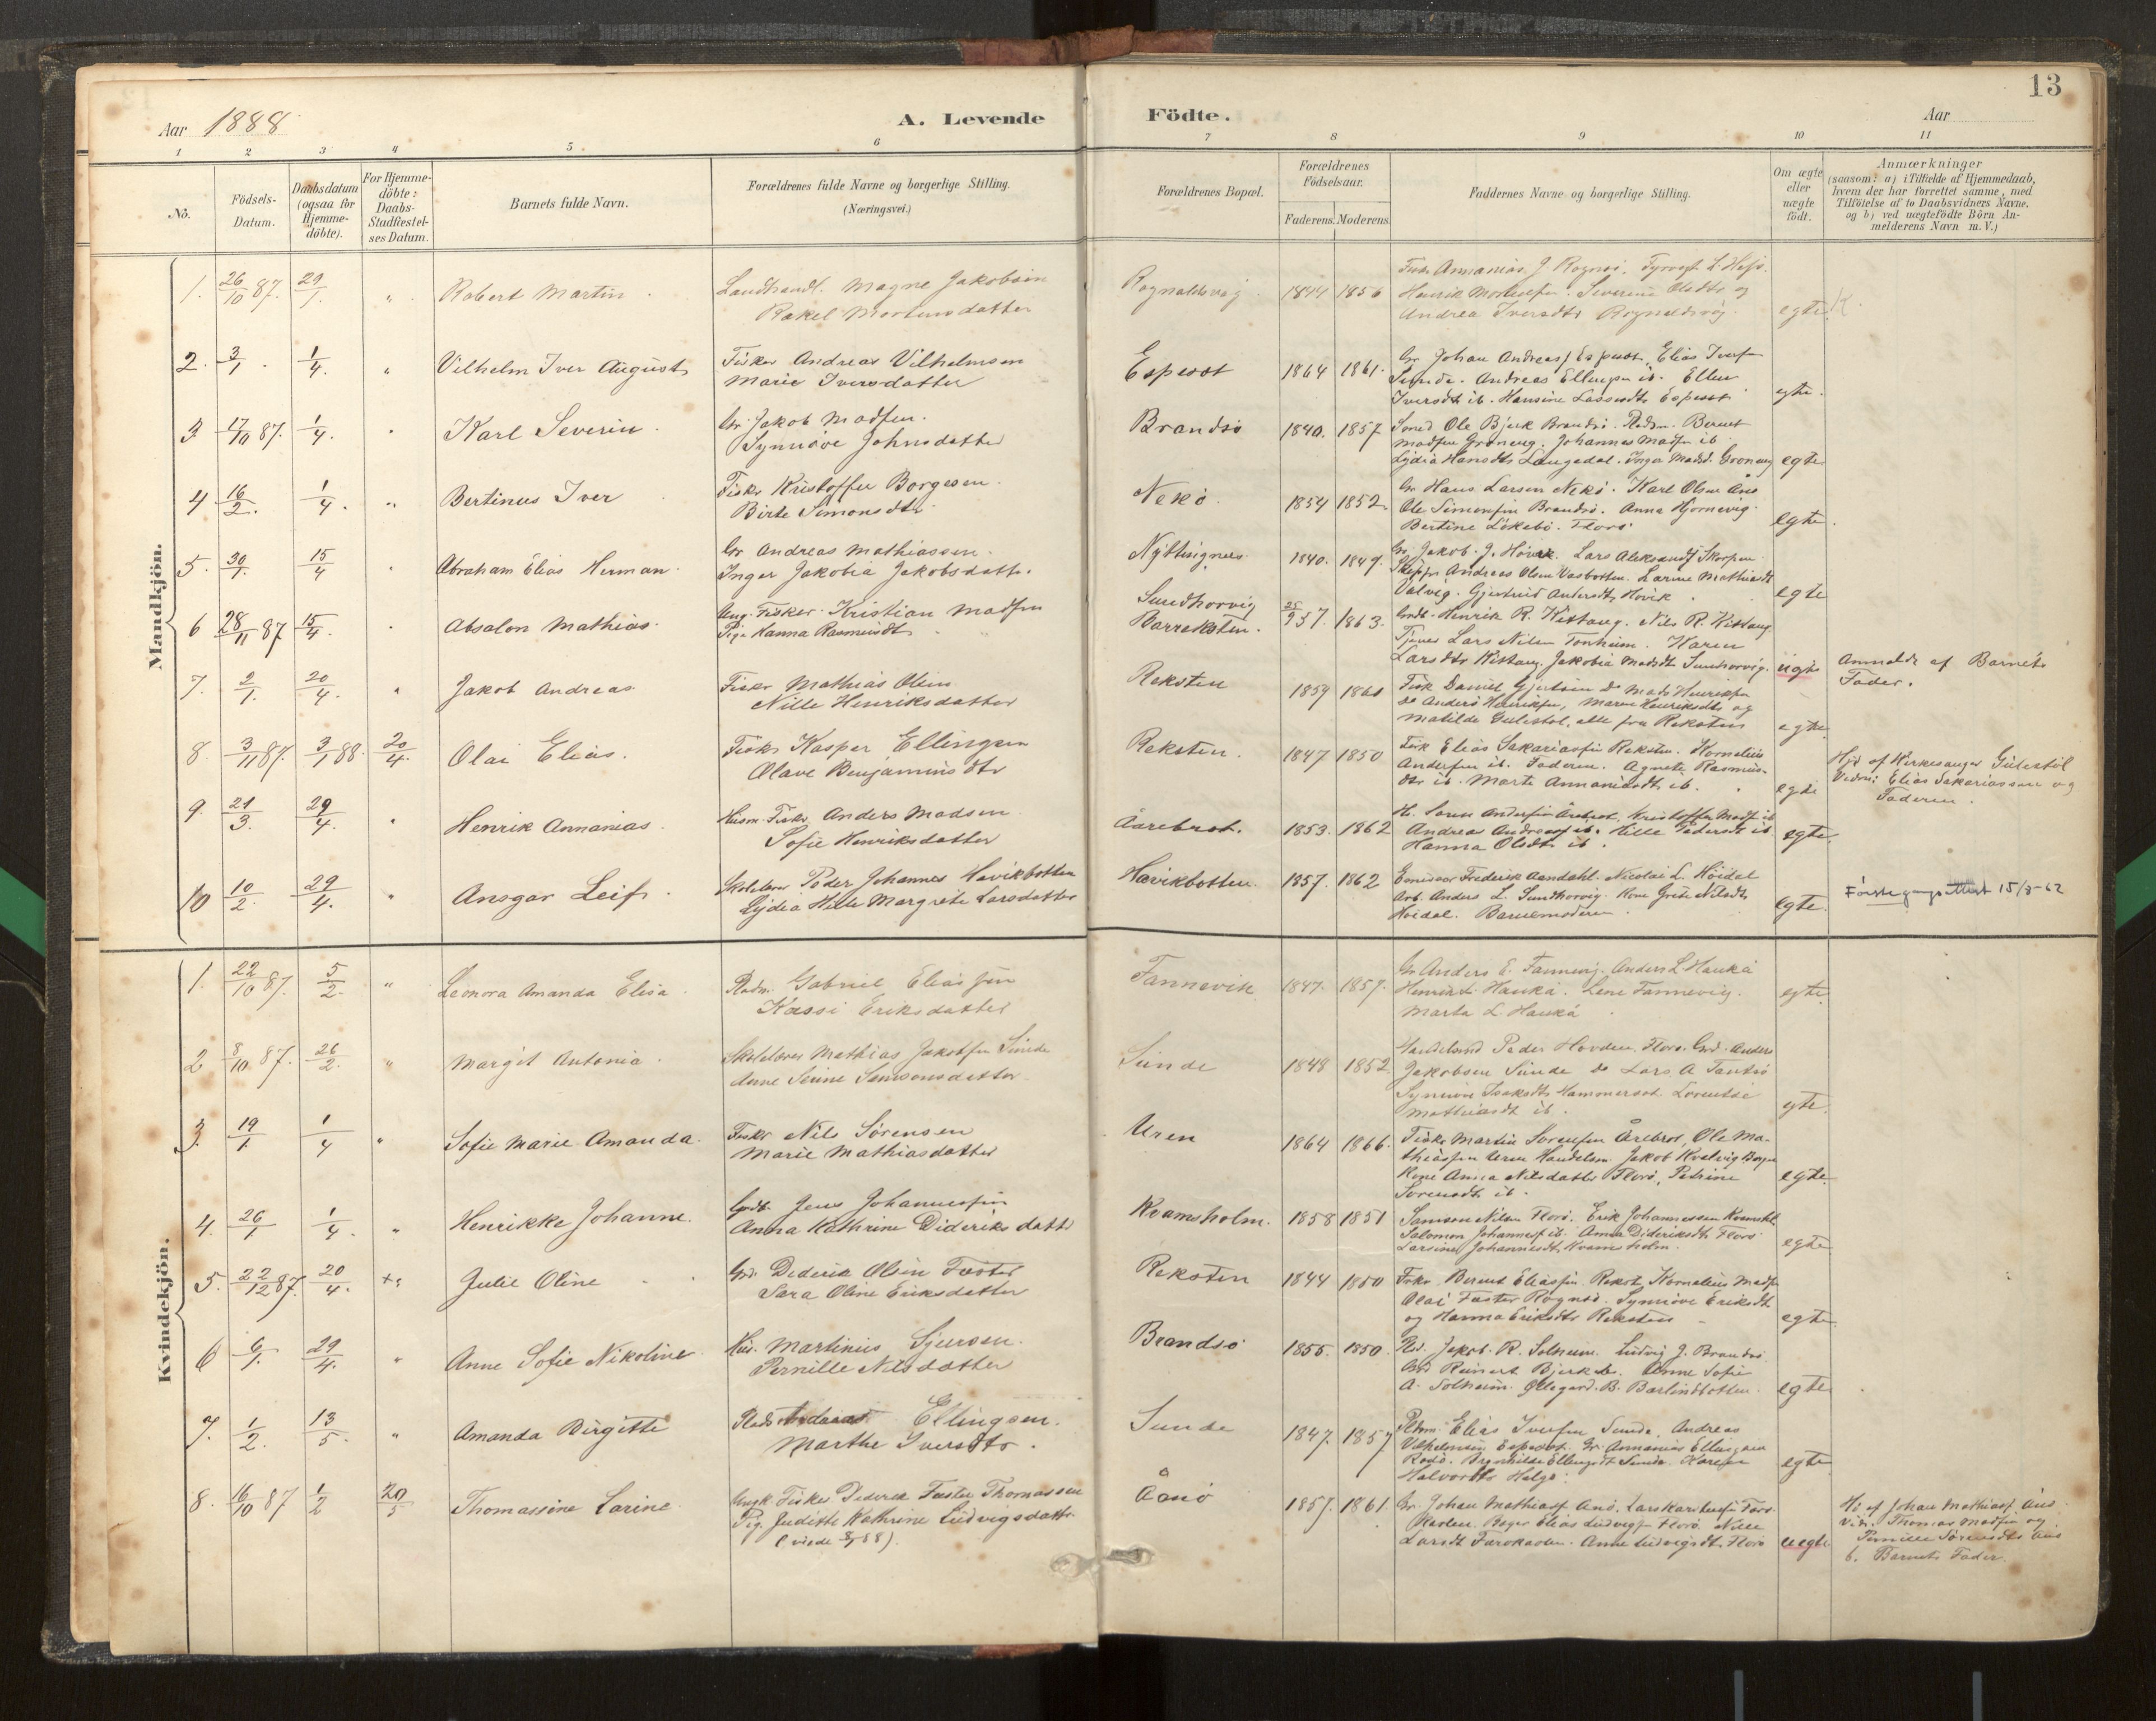 13
Aar 1888
A. Levende
Födte.
Aar
1
2
3
4
5
6
7
8
9
10
11
Nö.
Födsels-
Datum.
Daabsdatum
(ogsaa for
Hjemme-
döbte).
For Hjemme-
döbte:
Daabs-
Stadfæstel-
ses Datum.
Barnets fulde Navn.
Forældrenes fulde Navne og borgerlige Stilling.
(Næringsvei.)
Forældrenes Bopæl.
Forældrenes
Födselsaar.
Faderens. Moderens.
Faddernes Navne og borgerlige Stilling.
Om ægte
eller
uægte
födt.
Anmærkninger
(saasom: a) i Tilfælde af Hjemmedaab,
hvem der har forrettet samme, med
Tilföielse af to Daabsvidners Navne.
og b) ved uægtefödte Börn An-
melderens Navn m. V.)
Mandkjön.
1. 26/10 87. 29/1. " Robert Martin.
Landhandl. Magne Jakobsen
Rakel Mortensdatter
Rognaldsvåg 1844 1856
Andrea Iversdtr Rognaldsvåg. egte.
2. 3/1. 1/4. " Vilhelm Iver August
Fisker Andreas Vilhelmsen
Marie Iversdatter
Espeset 1864 1861.
Sunde. Andreas Ellingsen ib. Ellen
Iversdt ib. Hansine Lassesdtr Espeset egte.
3. 17/10 87. 1/4. " Karl Severin.
Gr. Jakob Madsen.
Synnöve Johnsdatter
Brandsö 1840. 1857
Smed Ole Bjerk Brandsö. Berent
Madsen Gröneng. Johannes Madsen ib.
Lydia Hansdtr Langedal. Inga Madsd. Gröneng egte
4 16/2. 1/4. " Bertinus Iver
Fisker Kristoffer Borgesen.
Birte Simonsdtr
Nekö. 1854 1852
Gr. Hans Larsen Nekö. Karl Olsen
Ole Simonsen Brandsö. Anna Hjörnevig.
Bertine Lökebö. Florö. egte.
5. 30/1. 15/4 " Abraham Elias Herman.
Gr Andreas Mathiassen.
Inger Jakobia Jakobsdatter.
1840. 1847.
Gr. Jakob. J. Hövik. Lars
Andreas Olsen Vasbotten. Larine Mathiasdt
Valvåg. Gjertrud Andersdtr Hövik. egte
6 28/11 87 15/4. " Absalon Mathias.
Ung. Fisker. Kristian Madsen
Pige Hanna Rasmusdt
Sundhorvig
Barreksten. 1863.
Henrik R. Kittang. Nils R. Kittang.
Lars Nilsen Tonheim. Karen
Larsdtr Kittang. Jakobia Madsdt Sundhorvig. uegte
Anmeldt af Barnets
Fader.
7. 2/1. 20/4. " Jakob Andreas.
Fisker Mathias Olsen
Nille Henriksdatter
Reksten 1859 1861
Fisk Daniel Gjertsen do Mads Henriksen
do Anders Henriksen, Marie Henriksdtr og
Matilde Gulestöl, alle fra Reksten egte.
8. 3/11 87. 3/1 88. 20/4. Olai Elias.
Fisker Kasper Ellingsen
Olave Benjaminsdtr
Reksten. 1847 1850
Fisk Elias Sakariassen Reksten. Kornelius
Andersen ib. Faderen. Agnete Rasmus-
dtr ib. Marte Annaniasdt ib. egte
Hjd af Kirkesanger Gulestöl
Vidn: Elias Sakariassen og
Faderen.
9. 21/3. 29/4. " Henrik Annanias.
Husm. Fisker Anders Madsen.
Sofie Henriksdatter
Aarebrot. 1853. 1862
Sören Andersen Årebrot, Kristoffer Madsen ib
Andreas ib. Nille Pedersdt ib
Hanna Olsdtr ib. egte.
10 10/2. 29/4. " Ansgar Leif.
Skolelærer Peder Johannes Hövikbotten
Lydia Hille Margrete Larsdatter
Hövikbotten 1857. 1862
Frederik Aandahl. Nicolai L. Höidal
Arb. Anders L. Sundhorvig. Kone Grete Nilsdtr
Höidal. Barnemoderen. egte.
Förstegangsattest 15/3-62
Kvindekjön.
1. 22/10 87. 5/2. " Leonora Amanda Elisa.
Gabriel Eliassen
Kassi Eriksdatter
Fannevik 1847. 1857.
Gr Anders E. Fannevig. Anders L Haukå
Henrik L. Haukå. Lene Fannevig.
Marta L. Haukå. egte.
2 8/10 87. 26/2. " Margit Antonia.
Skolelærer Mathias Jakobsen Sunde
Anne Samsonsdatter
Sunde 1848 1852
Peder Hovden. Florö. Grd. Anders
Jakobsen Sunde do Lars A
Synnöve Isaksdtr Hammerset. Lorentse
Mathiasdt ib. egte.
3. 19/1. 1/4 " Sofie Marie Amanda.
Fisker Nils Sörensen
Marie Mathiasdatter
Uren 1864 1866.
Fisker Martin Sörensen Årebrot, Ole Ma-
thiassen Uren Handelsm. Jakob Kvalvig
Kone Anna Nilsdatter Florö, Petrine
Sörensdtr ib. egte.
4. 26/1 1/4. " Henrikke Johanne.
Gdb. Jens Johannessen
Anna Kathrine Dideriksdatter
Kvamsholm. 1858 1851
Samson Nilsen Florö. Erik Johannessen
Salomon Johannes ib. Anna Dideriksdt Florö.
Larsine Johannesdtr Kvamsholm. egte
5. 22/12 87. 20/4. Julie Oline
Grd. Diderik Olsen Faster
Sara Oline Eriksdatter
Reksten 1844 1850
Berent Eliassen Rekst, Kornelius Madsen
Olai Faster Rognö. Synnöve Eriksdt
og Hanna Eriksdtr Reksten egte.
6 6/1. 29/4. " Anne Sofie Nikoline.
Hus. Martinius Sjursen.
Pernille Nilsdatter
Brandsö 1855. 1850.
Jakob. R. Solheim. Ludvig J. Brandsö.
Reinert Bjerk do. Anne Sofie
A. Solheim. Ollegard. B. Barlindbotten. egte
7. 1/2. 13/5. " Amanda Birgitte
Ellingsen.
Marthe Iversdtr.
Sunde 1847. 1857
Elias Iversen Sunde. Andreas
Vilhelmsen Espeset. Gr. Annanias Ellingsen
Brynhilde Ellingsdt Sunde. Karen
Halvorsdtr Helgö. egte
8. 16/10 87 1/2 20/5 Thomassine Larine.
Ungk. Fisker Diderik Faster Thomassen
Pig. Judithe Kathrine Ludvigsdatter.
(viede 8/1 88).
Åsnö 1857. 1861.
Gr. Johan Mathias
Elias Ludvigsen Florö. Nille
Larsdt Anne Ludvigsdt. Florö uegte
Hd af Johan Mathias
Vidn. Thomas Madsen og
Pernille Sörensdtr
b. Barnets Fader.